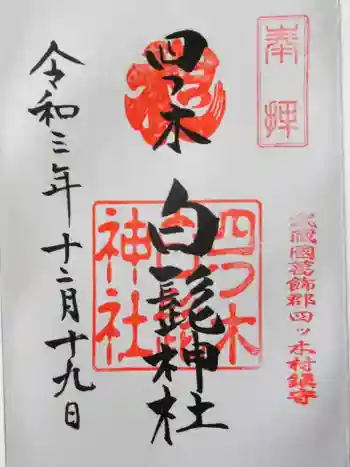 奉拝
武蔵國葛飾郡四ツ木村鎮守
四つ木
白髭神社
四つ木
白髭
神社
令和三年十二月十九日